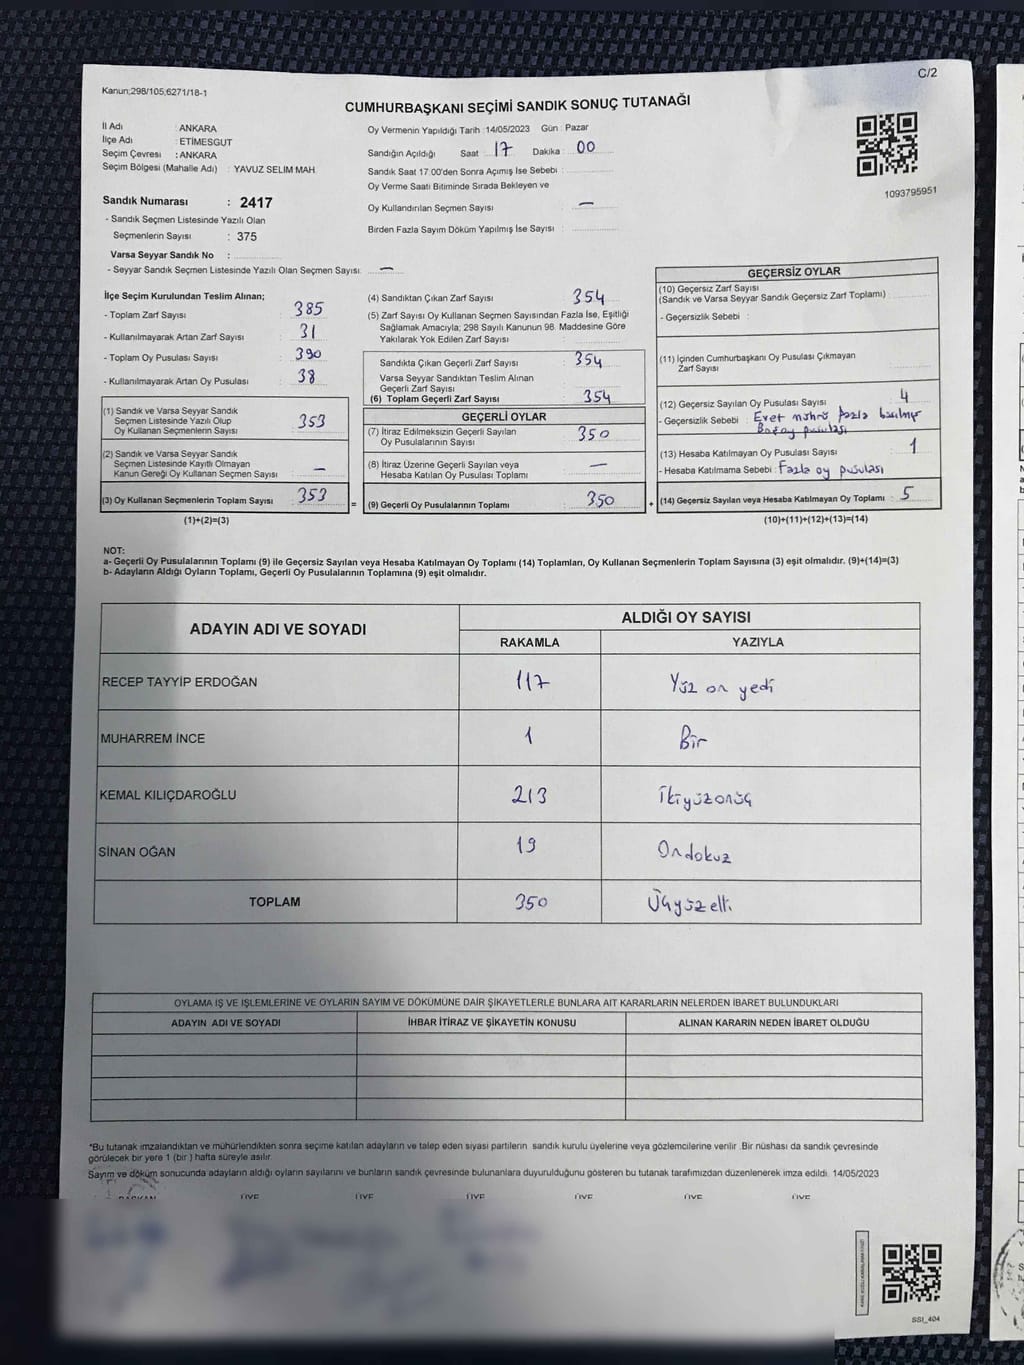 C/2
Kanun;298/105;6271/18-1
CUMHURBAŞKANI SEÇİMİ SANDIK SONUÇ TUTANAĞI
İl Adı : ANKARA
İlçe Adı : ETİMESGUT
Seçim Çevresi : ANKARA
Seçim Bölgesi (Mahalle Adı) : YAVUZ SELIM MAH.
Sandık Numarası : 2417
- Sandık Seçmen Listesinde Yazılı Olan
Seçmenlerin Sayısı : 375
Varsa Seyyar Sandık No :
- Seyyar Sandık Seçmen Listesinde Yazılı Olan Seçmen Sayısı: —
Oy Vermenin Yapıldığı Tarih :14/05/2023 Gün : Pazar
Sandığın Açıldığı Saat : 17 Dakika : 00
Sandık Saat 17:00'den Sonra Açımış İse Sebebi :
Oy Verme Saati Bitiminde Sırada Bekleyen ve
Oy Kullandırılan Seçmen Sayısı : —
Birden Fazla Sayım Döküm Yapılmış İse Sayısı :
1093795951
İlçe Seçim Kurulundan Teslim Alınan;
- Toplam Zarf Sayısı : 385
- Kullanılmayarak Artan Zarf Sayısı : 31
- Toplam Oy Pusulası Sayısı : 390
- Kullanılmayarak Artan Oy Pusulası : 38
(1) Sandık ve Varsa Seyyar Sandık
Seçmen Listesinde Yazılı Olup
Oy Kullanan Seçmenlerin Sayısı : 353
(2) Sandık ve Varsa Seyyar Sandık
Seçmen Listesinde Kayıtlı Olmayan
Kanun Gereği Oy Kullanan Seçmen Sayısı : —
(3) Oy Kullanan Seçmenlerin Toplam Sayısı : 353
(1)+(2)=(3)
(4) Sandıktan Çıkan Zarf Sayısı : 354
(5) Zarf Sayısı Oy Kullanan Seçmen Sayısından Fazla İse, Eşitliği
Sağlamak Amacıyla; 298 Sayılı Kanunun 98. Maddesine Göre
Yakılarak Yok Edilen Zarf Sayısı :
Sandıkta Çıkan Geçerli Zarf Sayısı : 354
Varsa Seyyar Sandıktan Teslim Alınan
Geçerli Zarf Sayısı :
(6) Toplam Geçerli Zarf Sayısı : 354
GEÇERLİ OYLAR
(7) İtiraz Edilmeksizin Geçerli Sayılan
Oy Pusulalarının Sayısı : 350
(8) İtiraz Üzerine Geçerli Sayılan veya
Hesaba Katılan Oy Pusulalarının Toplamı : —
= (9) Geçerli Oy Pusulalarının Toplamı : 350 +
GEÇERSİZ OYLAR
(10) Geçersiz Zarf Sayısı
(Sandık ve Varsa Seyyar Sandık Geçersiz Zarf Toplamı) :
- Geçersizlik Sebebi :
(11) İçinden Cumhurbaşkanı Oy Pusulası Çıkmayan
Zarf Sayısı :
(12) Geçersiz Sayılan Oy Pusulası Sayısı : 4
- Geçersizlik Sebebi : Evet mührü fazla basılmış
oy pusulası
(13) Hesaba Katılmayan Oy Pusulası Sayısı : 1
- Hesaba Katılmama Sebebi : Fazla oy pusulası
(14) Geçersiz Sayılan veya Hesaba Katılmayan Oy Toplamı : 5
(10)+(11)+(12)+(13)=(14)
NOT:
a- Geçerli Oy Pusulalarının Toplamı (9) ile Geçersiz Sayılan veya Hesaba Katılmayan Oy Toplamı (14) Toplamları, Oy Kullanan Seçmenlerin Toplam Sayısına (3) eşit olmalıdır. (9)+(14)=(3)
b- Adayların Aldığı Oyların Toplamı, Geçerli Oy Pusulalarının Toplamına (9) eşit olmalıdır.
ADAYIN ADI VE SOYADI ALDIĞI OY SAYISI
RAKAMLA YAZIYLA
RECEP TAYYİP ERDOĞAN 117 Yüz on yedi
MUHARREM İNCE 1 Bir
KEMAL KILIÇDAROĞLU 213 İkiyüzonüç
SİNAN OĞAN 19 Ondokuz
TOPLAM 350 Üçyüzelli
OYLAMA İŞ VE İŞLEMLERİNE VE OYLARIN SAYIM VE DÖKÜMÜNE DAİR ŞİKAYETLERLE BUNLARA AİT KARARLARIN NELERDEN İBARET BULUNDUKLARI
ADAYIN ADI VE SOYADI İHBAR İTİRAZ VE ŞİKAYETİN KONUSU ALINAN KARARIN NEDEN İBARET OLDUĞU
*Bu tutanak imzalandıktan ve mühürlendikten sonra seçime katılan adayların ve talep eden siyasi partilerin sandık kurulu üyelerine veya gözlemcilerine verilir .Bir nüshası da sandık çevresinde
görülecek bir yere 1 (bir ) hafta süreyle asılır.
Sayım ve döküm sonucunda adayların aldığı oyların sayılarını ve bunların sandık çevresinde bulunanlara duyurulduğunu gösteren bu tutanak tarafımızdan düzenlenerek imza edildi. 14/05/2023
BAŞKAN ÜYE ÜYE ÜYE ÜYE ÜYE ÜYE
SSİ_404